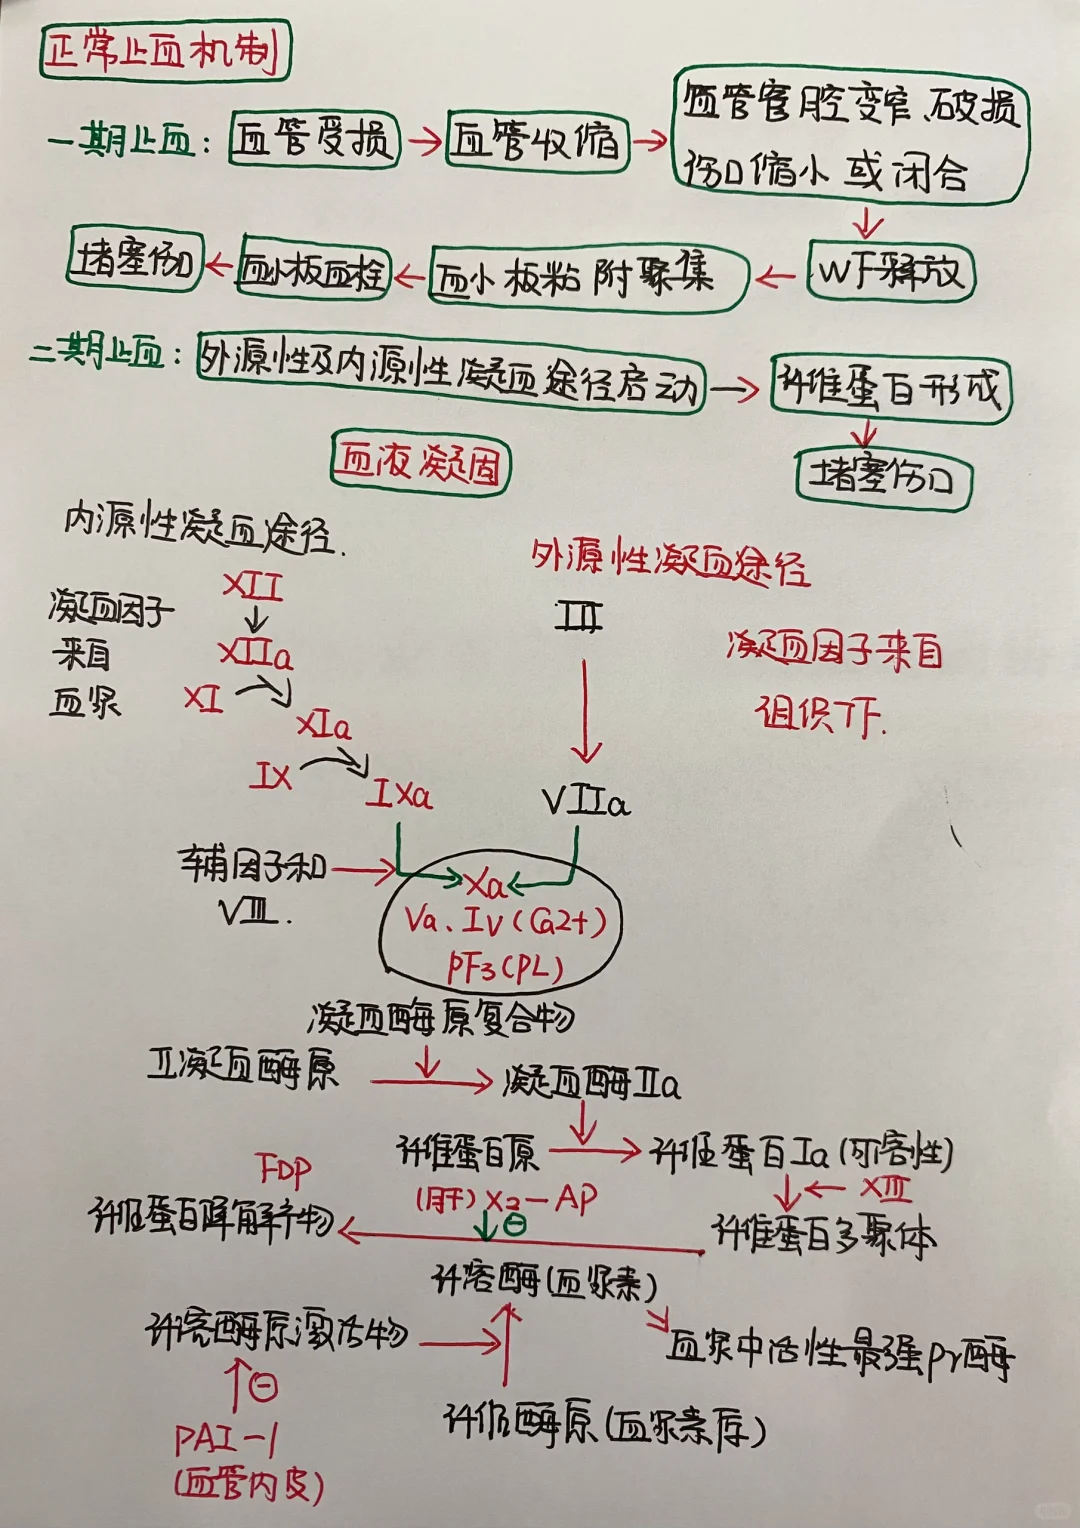 正常止血机制
一期止血：血管受损→血管收缩→血管管腔变窄、破损
伤口缩小或闭合
堵塞伤口←血小板血栓←血小板粘附聚集←WF释放
二期止血：外源性及内源性凝血途径启动→纤维蛋白形成
堵塞伤口
血液凝固
内源性凝血途径.
外源性凝血途径
XII
III
凝血因子
来自
血浆
XIIa
凝血因子来自
组织TF.
XI
XIa
IX
IXa
VIIa
辅因子和
VIII.
Xa
Va、IV(Ca2+)
PF3(PL)
凝血酶原复合物
II凝血酶原→凝血酶IIa
纤维蛋白原→纤维蛋白Ia(可溶性)
FDP
(肝)X2-AP
←XIII
纤维蛋白降解产物
⊖
纤维蛋白多聚体
纤溶酶(血浆素)
纤溶酶原激活物
血浆中活性最强pr酶
⊖
PAI-1
(血管内皮)
纤溶酶原(血浆素原)